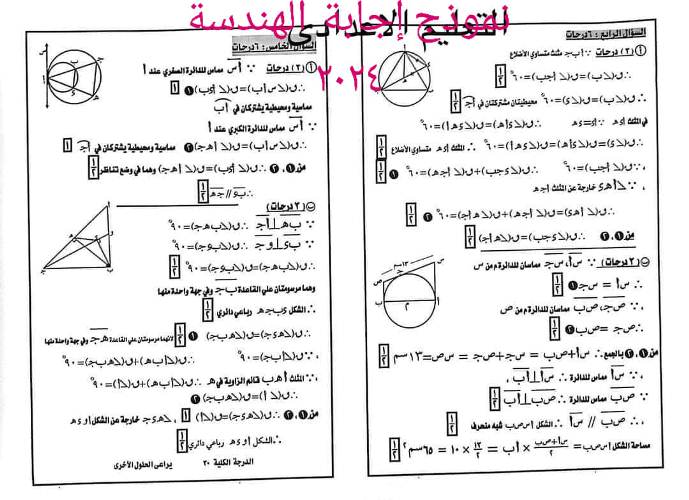 نموذج إجابة الهندسة
التعليم الاعدادى
٢٠٢٤
السؤال الرابع : ٦ درجات
أ (٣) درجات ∵ أ ب جـ مثلث متساوي الأضلاع
∴ ق(∠ب) = ق(∠أجب) = ٦٠°
∴ ق(∠ب) = ق(∠ء) = ٦٠° محيطيتان مشتركتان في أجـ ١/٢
في المثلث أءهـ ∵ أء = ءهـ
∴ ق(∠ءأهـ) = ق(∠ءهـأ) = ٦٠°
∴ ق(∠ءأهـ) = ق(∠ءهـأ) = ٦٠° ∴ المثلث أءهـ متساوي الأضلاع ١/٢
∵ ق(∠أجب) = ٦٠° ∴ ق(∠ءجب) + ق(∠أجهـ) = ٦٠° ١ ١/٢
، ∵ ∠أهـء خارجة عن المثلث أجهـ
∴ ق(∠أهـء) = ق(∠أجهـ) + ق(∠هـأجـ) = ٦٠° ٢ ١/٢
من ١، ٢ ∴ ق(∠ءجب) = ق(∠هـأجـ) ١/٢
ب (٣ درجات) ∵ س أ، س جـ مماسان للدائرة م من س
∴ س أ = س جـ ١ ١/٢
∵ ص جـ، ص ب مماسان للدائرة م من ص
∴ ص جـ = ص ب ٢ ١/٢
من ١، ٢ بالجمع ∴ س أ + ص ب = س جـ + ص جـ = س ص = ١٣ سم ١/٢
، ∵ س أ مماس للدائرة ∴ س أ ⊥ أب
∵ ص ب مماس للدائرة ∴ ص ب ⊥ أب ١/٢
∴ ص ب // س أ ∴ الشكل أ س ص ب شبه منحرف ١/٢
مساحة الشكل أ س ص ب = (س أ + ص ب)/٢ × أب = ١٣/٢ × ١٠ = ٦٥ سم٢ ١/٢
السؤال الخامس : ٦ درجات
أ (٣) درجات ∵ أس مماس للدائرة الصغري عند أ
∴ ق(∠س أب) = ق(∠أءب) ١ ١
مماسية ومحيطية يشتركان في أب
∵ أس مماس للدائرة الكبري عند أ
∴ ق(∠س أب) = ق(∠أهـجـ) ٢ مماسية ومحيطية يشتركان في أجـ ١
من ١، ٢ ∴ ق(∠أءب) = ق(∠أهـجـ) وهما في وضع تناظر ١/٢
∴ بء // جـهـ ١/٢
ب (٣ درجات)
∵ ب هـ ⊥ أجـ ∴ ق(∠بهـجـ) = ٩٠°
∵ بء ⊥ وجـ ∴ ق(∠بءجـ) = ٩٠°
∴ ق(∠بهـجـ) = ق(∠بءجـ) = ٩٠° ١/٢
وهما مرسومتان علي القاعدة بجـ وفي جهة واحدة منها
∴ الشكل ءبجـهـ رباعي دائري ١/٢
∴ ق(∠هـءجـ) = ق(∠هـبجـ) ١ ١/٢ لانهما مرسومتان علي القاعدة هـجـ وفي جهة واحدة منها
، ∵ ق(∠أبجـ) = ٩٠° ∴ ق(∠أبهـ) + ق(∠هـبجـ) = ٩٠°
، ∵ المثلث أهـب قائم الزاوية في هـ ∴ ق(∠أبهـ) + ق(∠أ) = ٩٠°
∴ ق(∠أ) = ق(∠هـبجـ) ٢ ١/٢
من ١، ٢ ∴ ق(∠هـءجـ) = ق(∠أ) ١/٢ ، ∠هـءجـ خارجة عن الشكل أوءهـ
∴ الشكل أوءهـ رباعي دائري ١/٢
الدرجة الكلية ٣٠ يراعى الحلول الأخرى